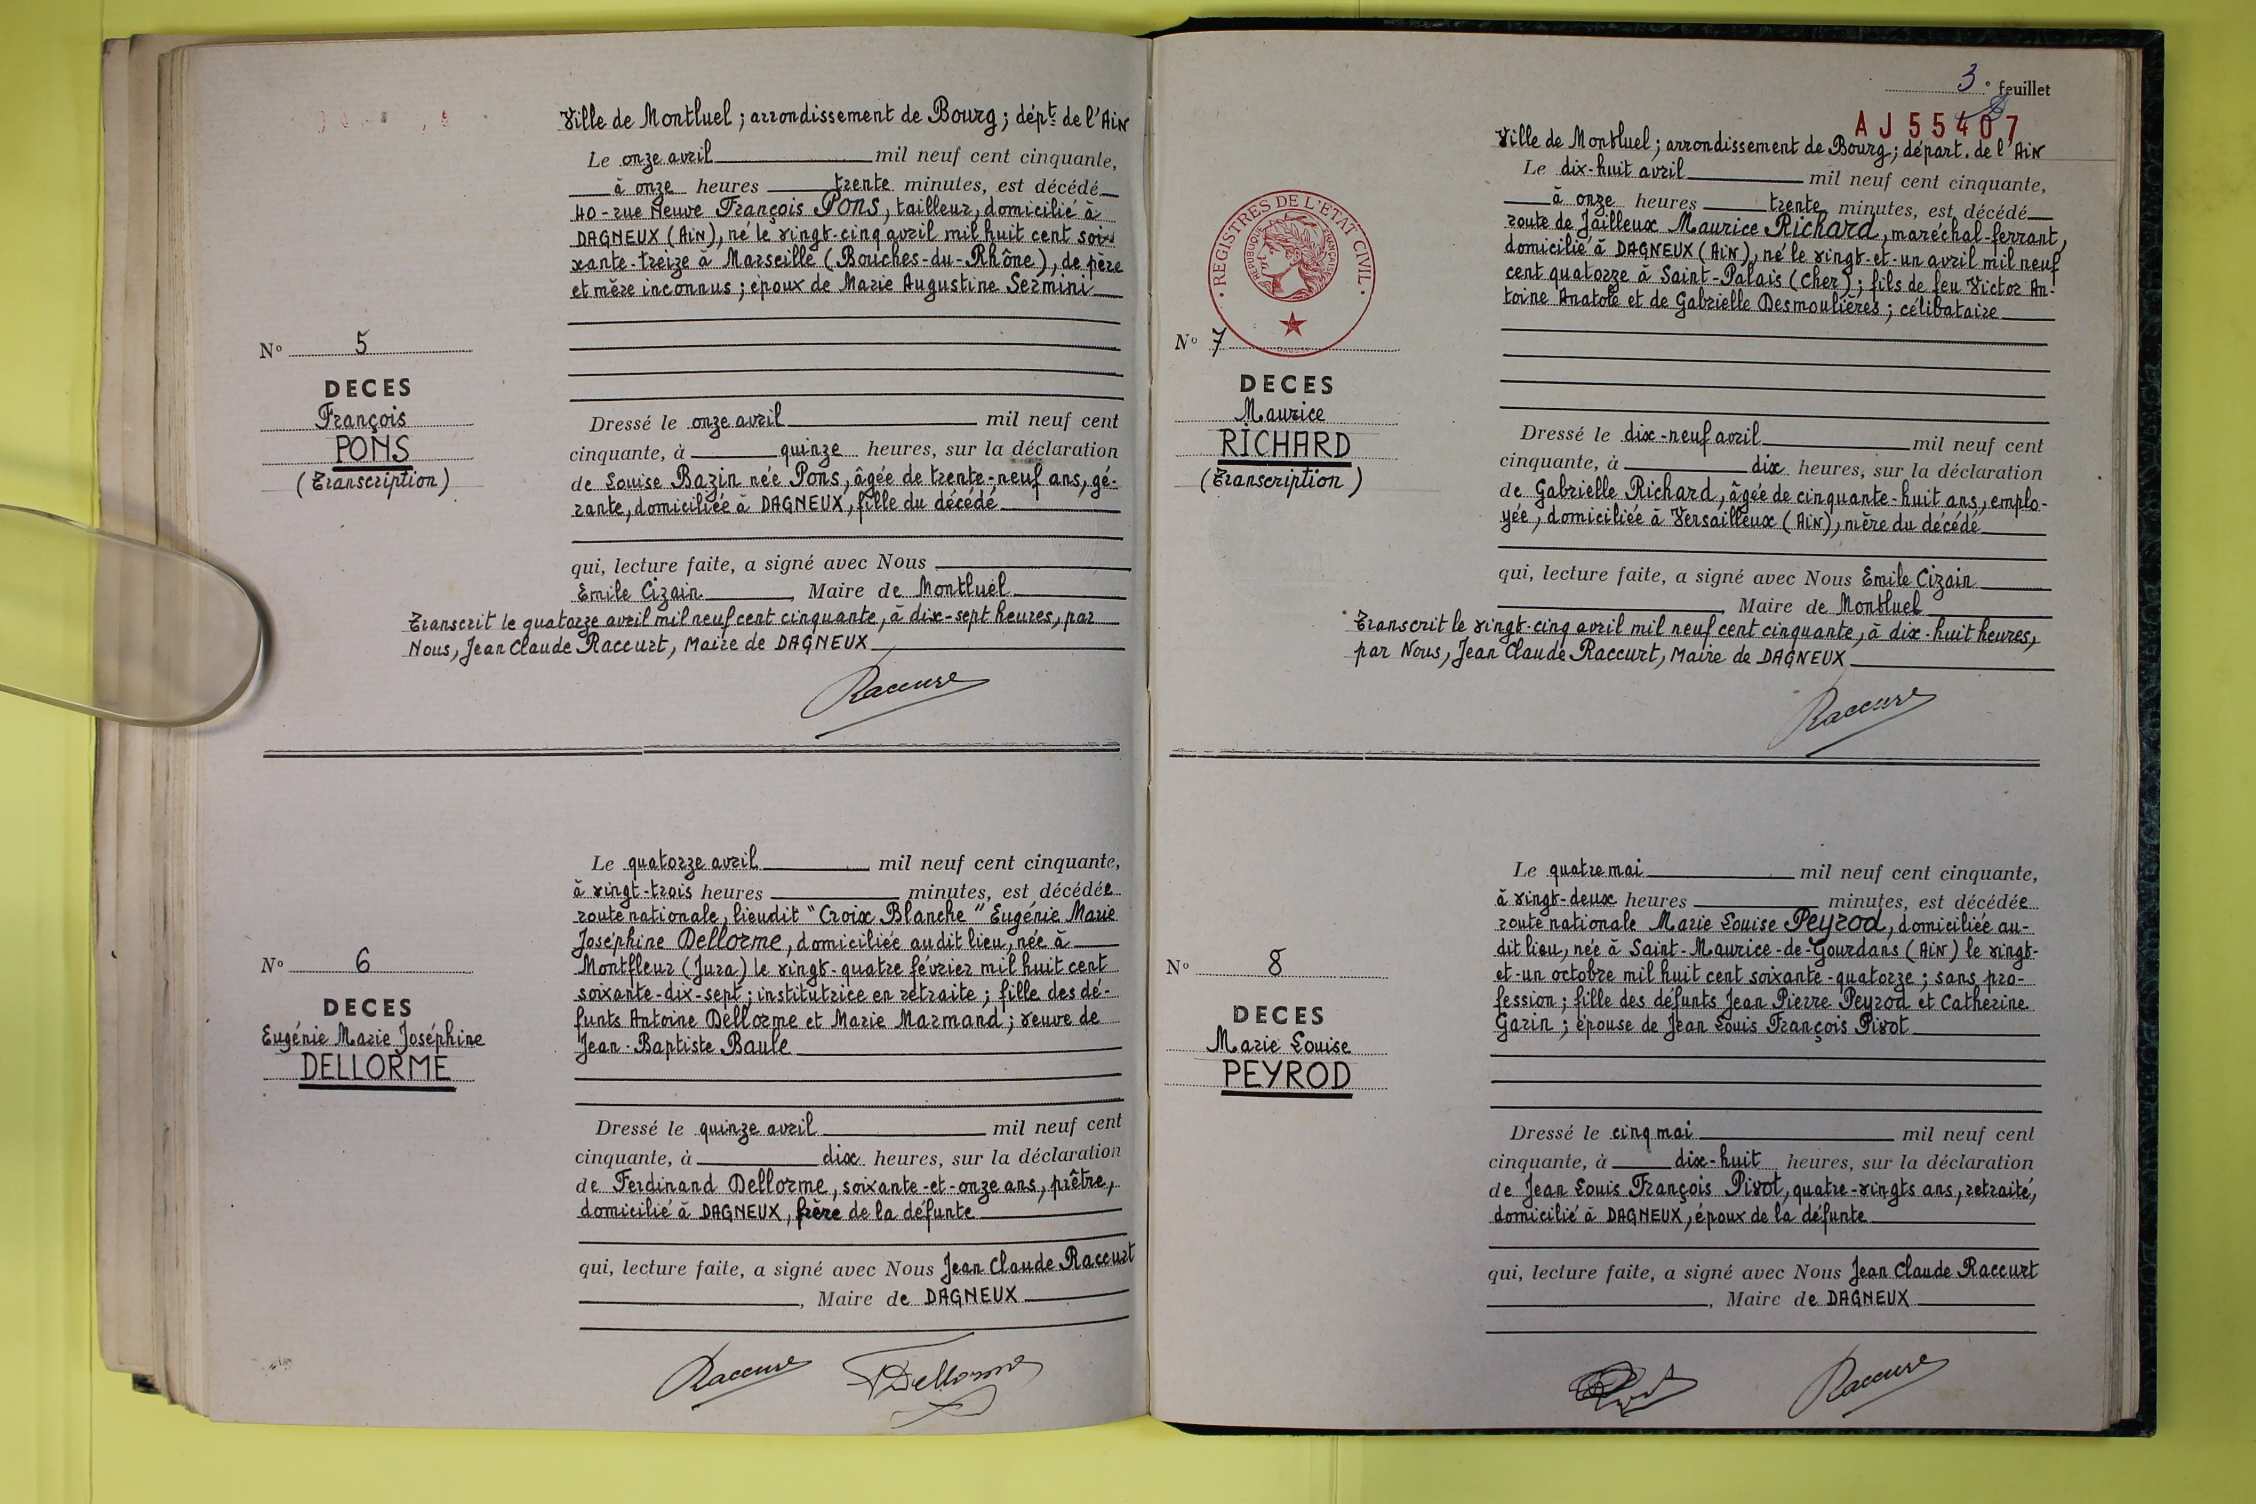 Ville de Montluel ; arrondissement de Bourg ; dépt de l'Ain
Le onze avril mil neuf cent cinquante,
à onze heures trente minutes, est décédé
40 - rue Neuve François Pons, tailleur, domicilié à
DAGNEUX (Ain), né le vingt-cinq avril mil huit cent soix
xante-treize à Marseille (Bouches-du-Rhône), de père
et mère inconnus ; époux de Marie Augustine Sermini
N° 5
DECES
François
PONS
(Transcription)
Dressé le onze avril mil neuf cent
cinquante, à quinze heures, sur la déclaration
de Louise Bazin née Pons, âgée de trente-neuf ans, gé-
rante, domiciliée à DAGNEUX, fille du décédé
qui, lecture faite, a signé avec Nous
Emile Cizain, Maire de Montluel
Transcrit le quatorze avril mil neuf cent cinquante, à dix-sept heures, par
Nous, Jean Claude Raccurt, Maire de DAGNEUX
Raccurt
Le quatorze avril mil neuf cent cinquante,
à vingt-trois heures minutes, est décédée
route nationale, lieudit "Croix Blanche" Eugénie Marie
Joséphine Dellorme, domiciliée audit lieu, née à
Montfleur (Jura) le vingt-quatre février mil huit cent
soixante-dix-sept ; institutrice en retraite ; fille des dé-
funts Antoine Dellorme et Marie Marmand ; veuve de
Jean-Baptiste Baule
N° 6
DECES
Eugénie Marie Joséphine
DELLORME
Dressé le quinze avril mil neuf cent
cinquante, à dix heures, sur la déclaration
de Ferdinand Dellorme, soixante-et-onze ans, prêtre,
domicilié à DAGNEUX, frère de la défunte
qui, lecture faite, a signé avec Nous Jean Claude Raccurt
, Maire de DAGNEUX
Raccurt Dellorme
3e feuillet
AJ55407
Ville de Montluel ; arrondissement de Bourg ; départ. de l'Ain
Le dix-huit avril mil neuf cent cinquante,
à onze heures trente minutes, est décédé
route de Jailleux Maurice Richard, maréchal-ferrant,
domicilié à DAGNEUX (Ain), né le vingt-et-un avril mil neuf
cent quatorze à Saint-Palais (Cher) ; fils de feu Victor An-
toine Anatole et de Gabrielle Desmoulières ; célibataire
REGISTRES DE L'ETAT CIVIL
REPUBLIQUE FRANÇAISE
N° 7
DECES
Maurice
RICHARD
(Transcription)
Dressé le dix-neuf avril mil neuf cent
cinquante, à dix heures, sur la déclaration
de Gabrielle Richard, âgée de cinquante-huit ans, emplo-
yée, domiciliée à Versailleux (Ain), mère du décédé
qui, lecture faite, a signé avec Nous Emile Cizain
, Maire de Montluel
Transcrit le vingt-cinq avril mil neuf cent cinquante, à dix-huit heures,
par Nous, Jean Claude Raccurt, Maire de DAGNEUX
Raccurt
Le quatre mai mil neuf cent cinquante,
à vingt-deux heures minutes, est décédée
route nationale Marie Louise Peyrod, domiciliée au-
dit lieu, née à Saint-Maurice-de-Gourdans (Ain) le vingt-
et-un octobre mil huit cent soixante-quatorze ; sans pro-
fession ; fille des défunts Jean Pierre Peyrod et Catherine
Garin ; épouse de Jean Louis François Pivot
N° 8
DECES
Marie Louise
PEYROD
Dressé le cinq mai mil neuf cent
cinquante, à dix-huit heures, sur la déclaration
de Jean Louis François Pivot, quatre-vingts ans, retraité,
domicilié à DAGNEUX, époux de la défunte
qui, lecture faite, a signé avec Nous Jean Claude Raccurt
, Maire de DAGNEUX
Raccurt